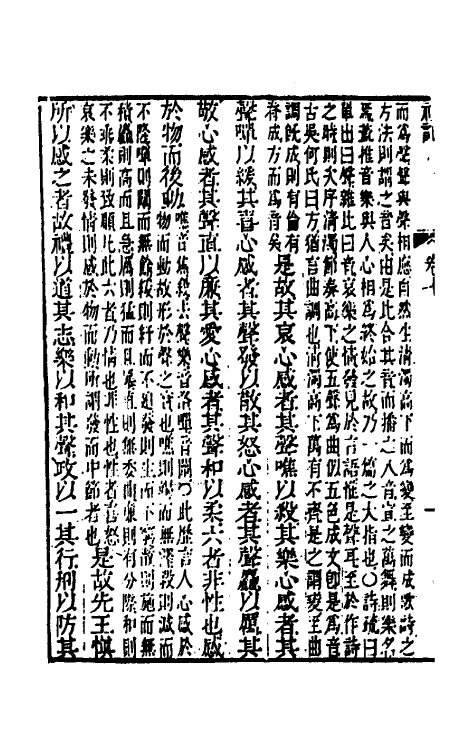 禮記
卷七
而爲聲聲與聲相應自然生清濁高下而爲變至變而成歌詩之
方法則謂之音矣由是比合其音而播之八音宣之萬舞則樂名
焉蓋推音樂與人心相爲終始之故乃一篇之大指也○詩疏曰
單出曰聲雜比曰音哀樂之情發見於言語惟是聲耳至於作詩
之時則次序清濁節奏高下使五聲爲曲似五色成文卽是爲音
古吳何氏曰方猶言曲調也清濁高下萬有不齊是之謂變至曲
調旣成則有倫有
脊成方而爲音矣
是故其哀心感者其聲噍以殺其樂心感者其
聲嘽以緩其喜心感者其聲發以散其怒心感者其聲麤以厲其
敬心感者其聲直以廉其愛心感者其聲和以柔六者非性也感
於物而後動
噍音焦殺去聲樂音洛嘽音闡○此歷言人心感於
物而動故形於聲之音也噍則竭而無澤殺則減而
不隆嘽則闡而無餘緩則紓而不迫發則生而不窮散則施而無
積麤則高而且急厲則猛而且暴直則無委曲廉則有分際和則
不乖柔則致順凡此六者乃情也非性也性者喜怒
哀樂之未發情則感於物而動所謂發而中節者也
是故先王慎
所以感之者故禮以道其志樂以和其聲政以一其行刑以防其